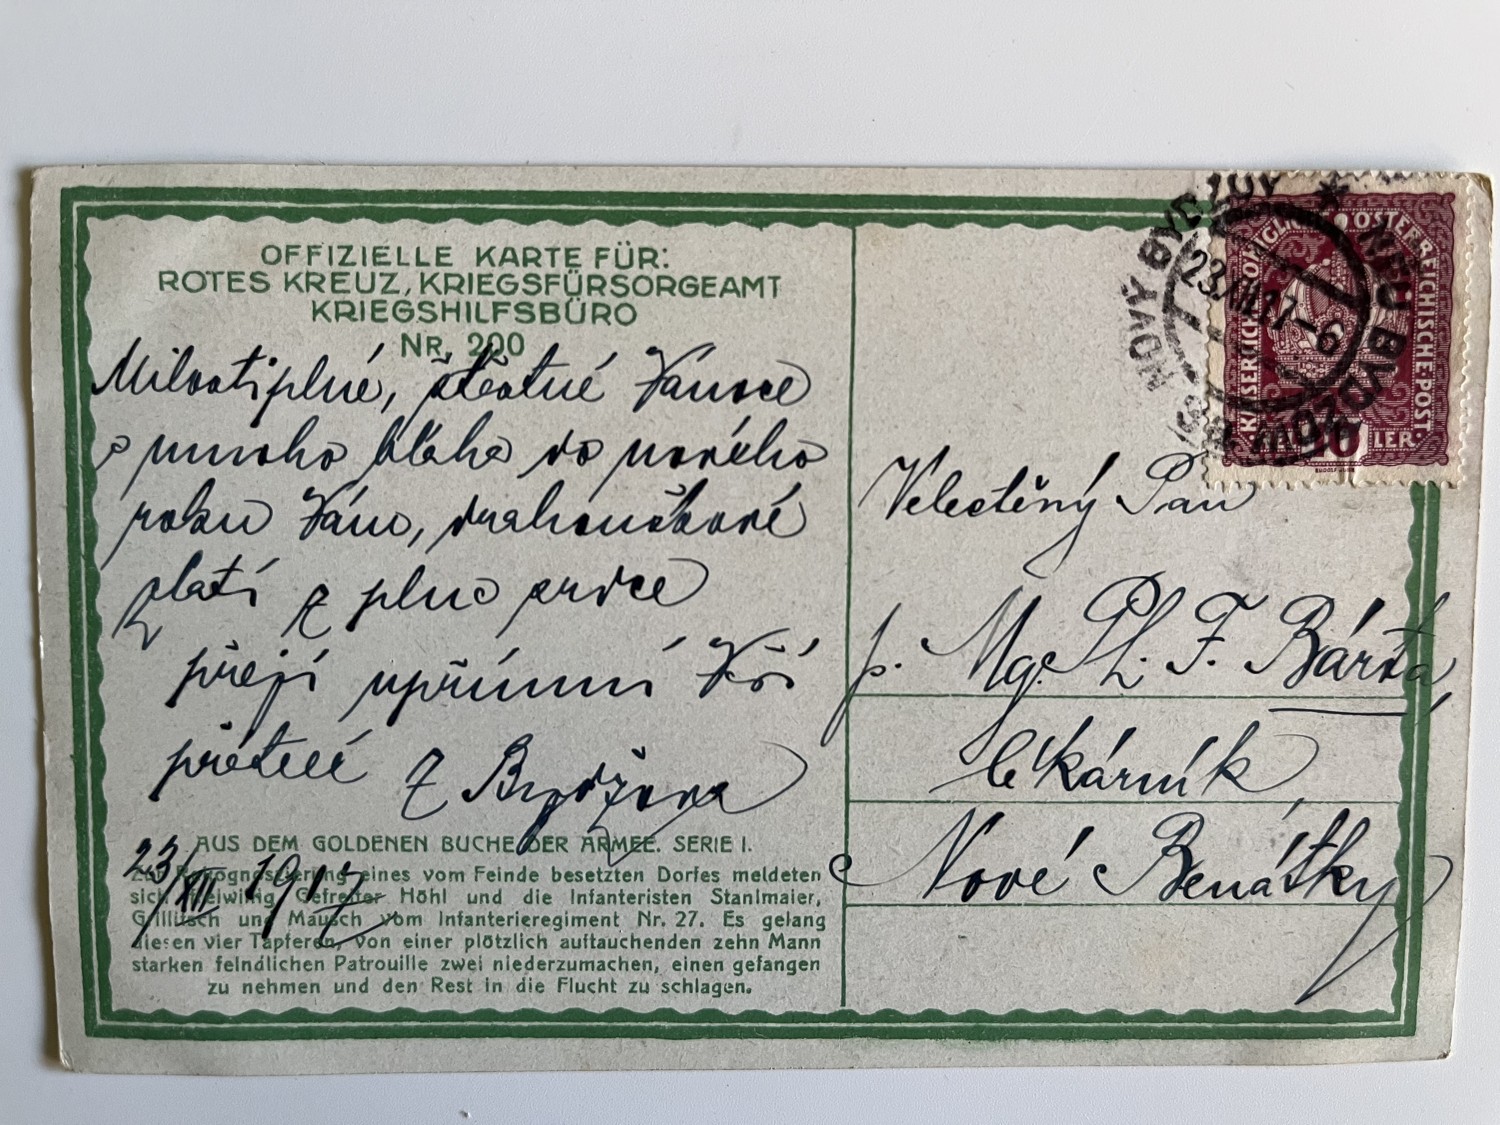 OFFIZIELLE KARTE FÜR:
ROTES KREUZ, KRIEGSFÜRSORGEAMT
KRIEGSHILFSBÜRO
NR. 200
Milostiplné, šťastné Vánoce
a mnoho bláha do nového
roku Vám, drahouškové
zlatí z plna srdce
přejí upřímní Vší
přátelé z Bydžova
23/XII 1917
AUS DEM GOLDENEN BUCHE DER ARMEE. SERIE I.
Zur Rekognoszierung eines vom Feinde besetzten Dorfes meldeten
sich freiwillig Gefreiter Höhl und die Infanteristen Stanlmaier,
Grillitsch und Mausch vom Infanterieregiment Nr. 27. Es gelang
diesen vier Tapferen, von einer plötzlich auftauchenden zehn Mann
starken feindlichen Patrouille zwei niederzumachen, einen gefangen
zu nehmen und den Rest in die Flucht zu schlagen.
NOVÝ BYDŽOV * NEU BYDŽOW
23.XII.17-6
KAISERLICH KÖNIGLICHE ÖSTERREICHISCHE POST
10 HELLER
Velectěný Pan
p. Mg. Ph. F. Bárta,
lékárník,
Nové Benátky